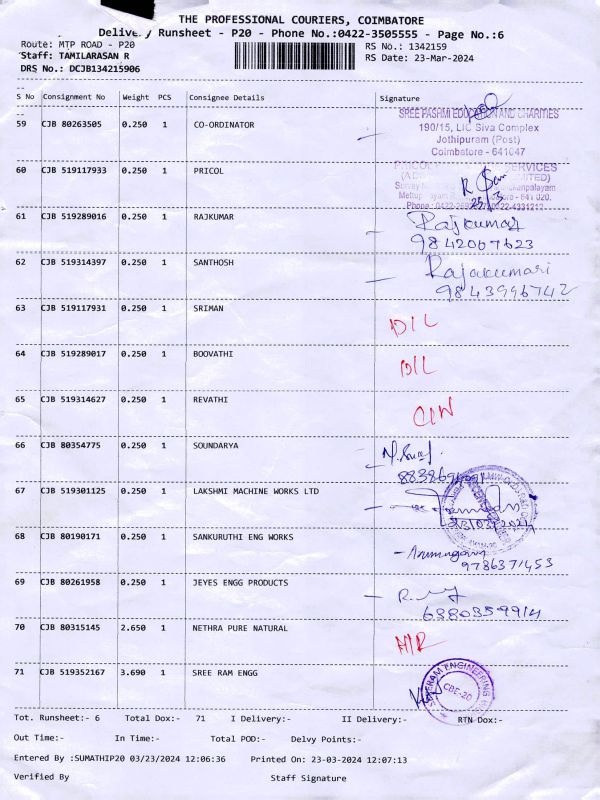 THE PROFESSIONAL COURIERS, COIMBATORE
Delivery Runsheet - P20 - Phone No.:0422-3505555 - Page No.:6
Route: MTP ROAD - P20 RS No.: 1342159
Staff: TAMILARASAN R RS Date: 23-Mar-2024
DRS No.: DCJB134215906
S No Consignment No Weight PCS Consignee Details Signature
59 CJB 80263505 0.250 1 CO-ORDINATOR
SREE PASHMI EDUCATION AND CHARITIES
190/15, LIC Siva Complex
Jothipuram (Post)
Coimbatore - 641047
60 CJB 519117933 0.250 1 PRICOL
61 CJB 519289016 0.250 1 RAJKUMAR Rajkumar
9842007623
62 CJB 519314397 0.250 1 SANTHOSH Rajakumari
9843996742
63 CJB 519117931 0.250 1 SRIMAN D/L
64 CJB 519289017 0.250 1 BOOVATHI D/L
65 CJB 519314627 0.250 1 REVATHI
66 CJB 80354775 0.250 1 SOUNDARYA
67 CJB 519301125 0.250 1 LAKSHMI MACHINE WORKS LTD
68 CJB 80190171 0.250 1 SANKURUTHI ENG WORKS
9786371453
69 CJB 80261958 0.250 1 JEYES ENGG PRODUCTS
6380359914
70 CJB 80315145 2.650 1 NETHRA PURE NATURAL
71 CJB 519352167 3.690 1 SREE RAM ENGG
CBE-20
Tot. Runsheet:- 6 Total Dox:- 71 I Delivery:- II Delivery:- RTN Dox:-
Out Time:- In Time:- Total POD:- Delvy Points:-
Entered By :SUMATHIP20 03/23/2024 12:06:36 Printed On: 23-03-2024 12:07:13
Verified By Staff Signature